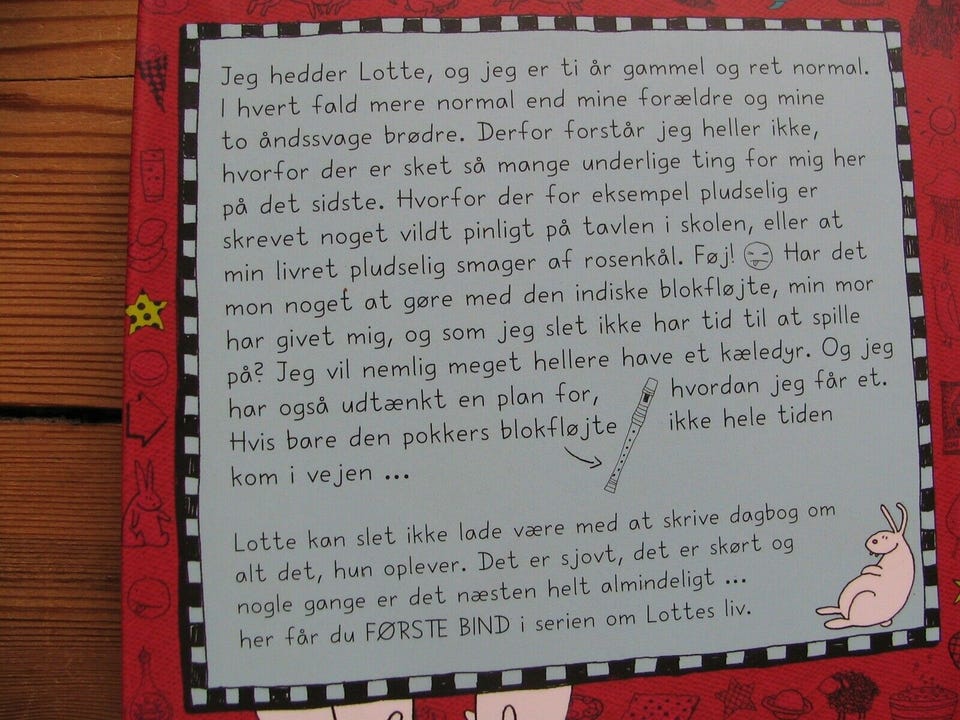 Jeg hedder Lotte, og jeg er ti år gammel og ret normal.
I hvert fald mere normal end mine forældre og mine
to åndssvage brødre. Derfor forstår jeg heller ikke,
hvorfor der er sket så mange underlige ting for mig her
på det sidste. Hvorfor der for eksempel pludselig er
skrevet noget vildt pinligt på tavlen i skolen, eller at
min livret pludselig smager af rosenkål. Føj! Har det
mon noget at gøre med den indiske blokfløjte, min mor
har givet mig, og som jeg slet ikke har tid til at spille
på? Jeg vil nemlig meget hellere have et kæledyr. Og jeg
har også udtænkt en plan for, hvordan jeg får et.
Hvis bare den pokkers blokfløjte ikke hele tiden
kom i vejen ...
Lotte kan slet ikke lade være med at skrive dagbog om
alt det, hun oplever. Det er sjovt, det er skørt og
nogle gange er det næsten helt almindeligt ...
her får du FØRSTE BIND i serien om Lottes liv.